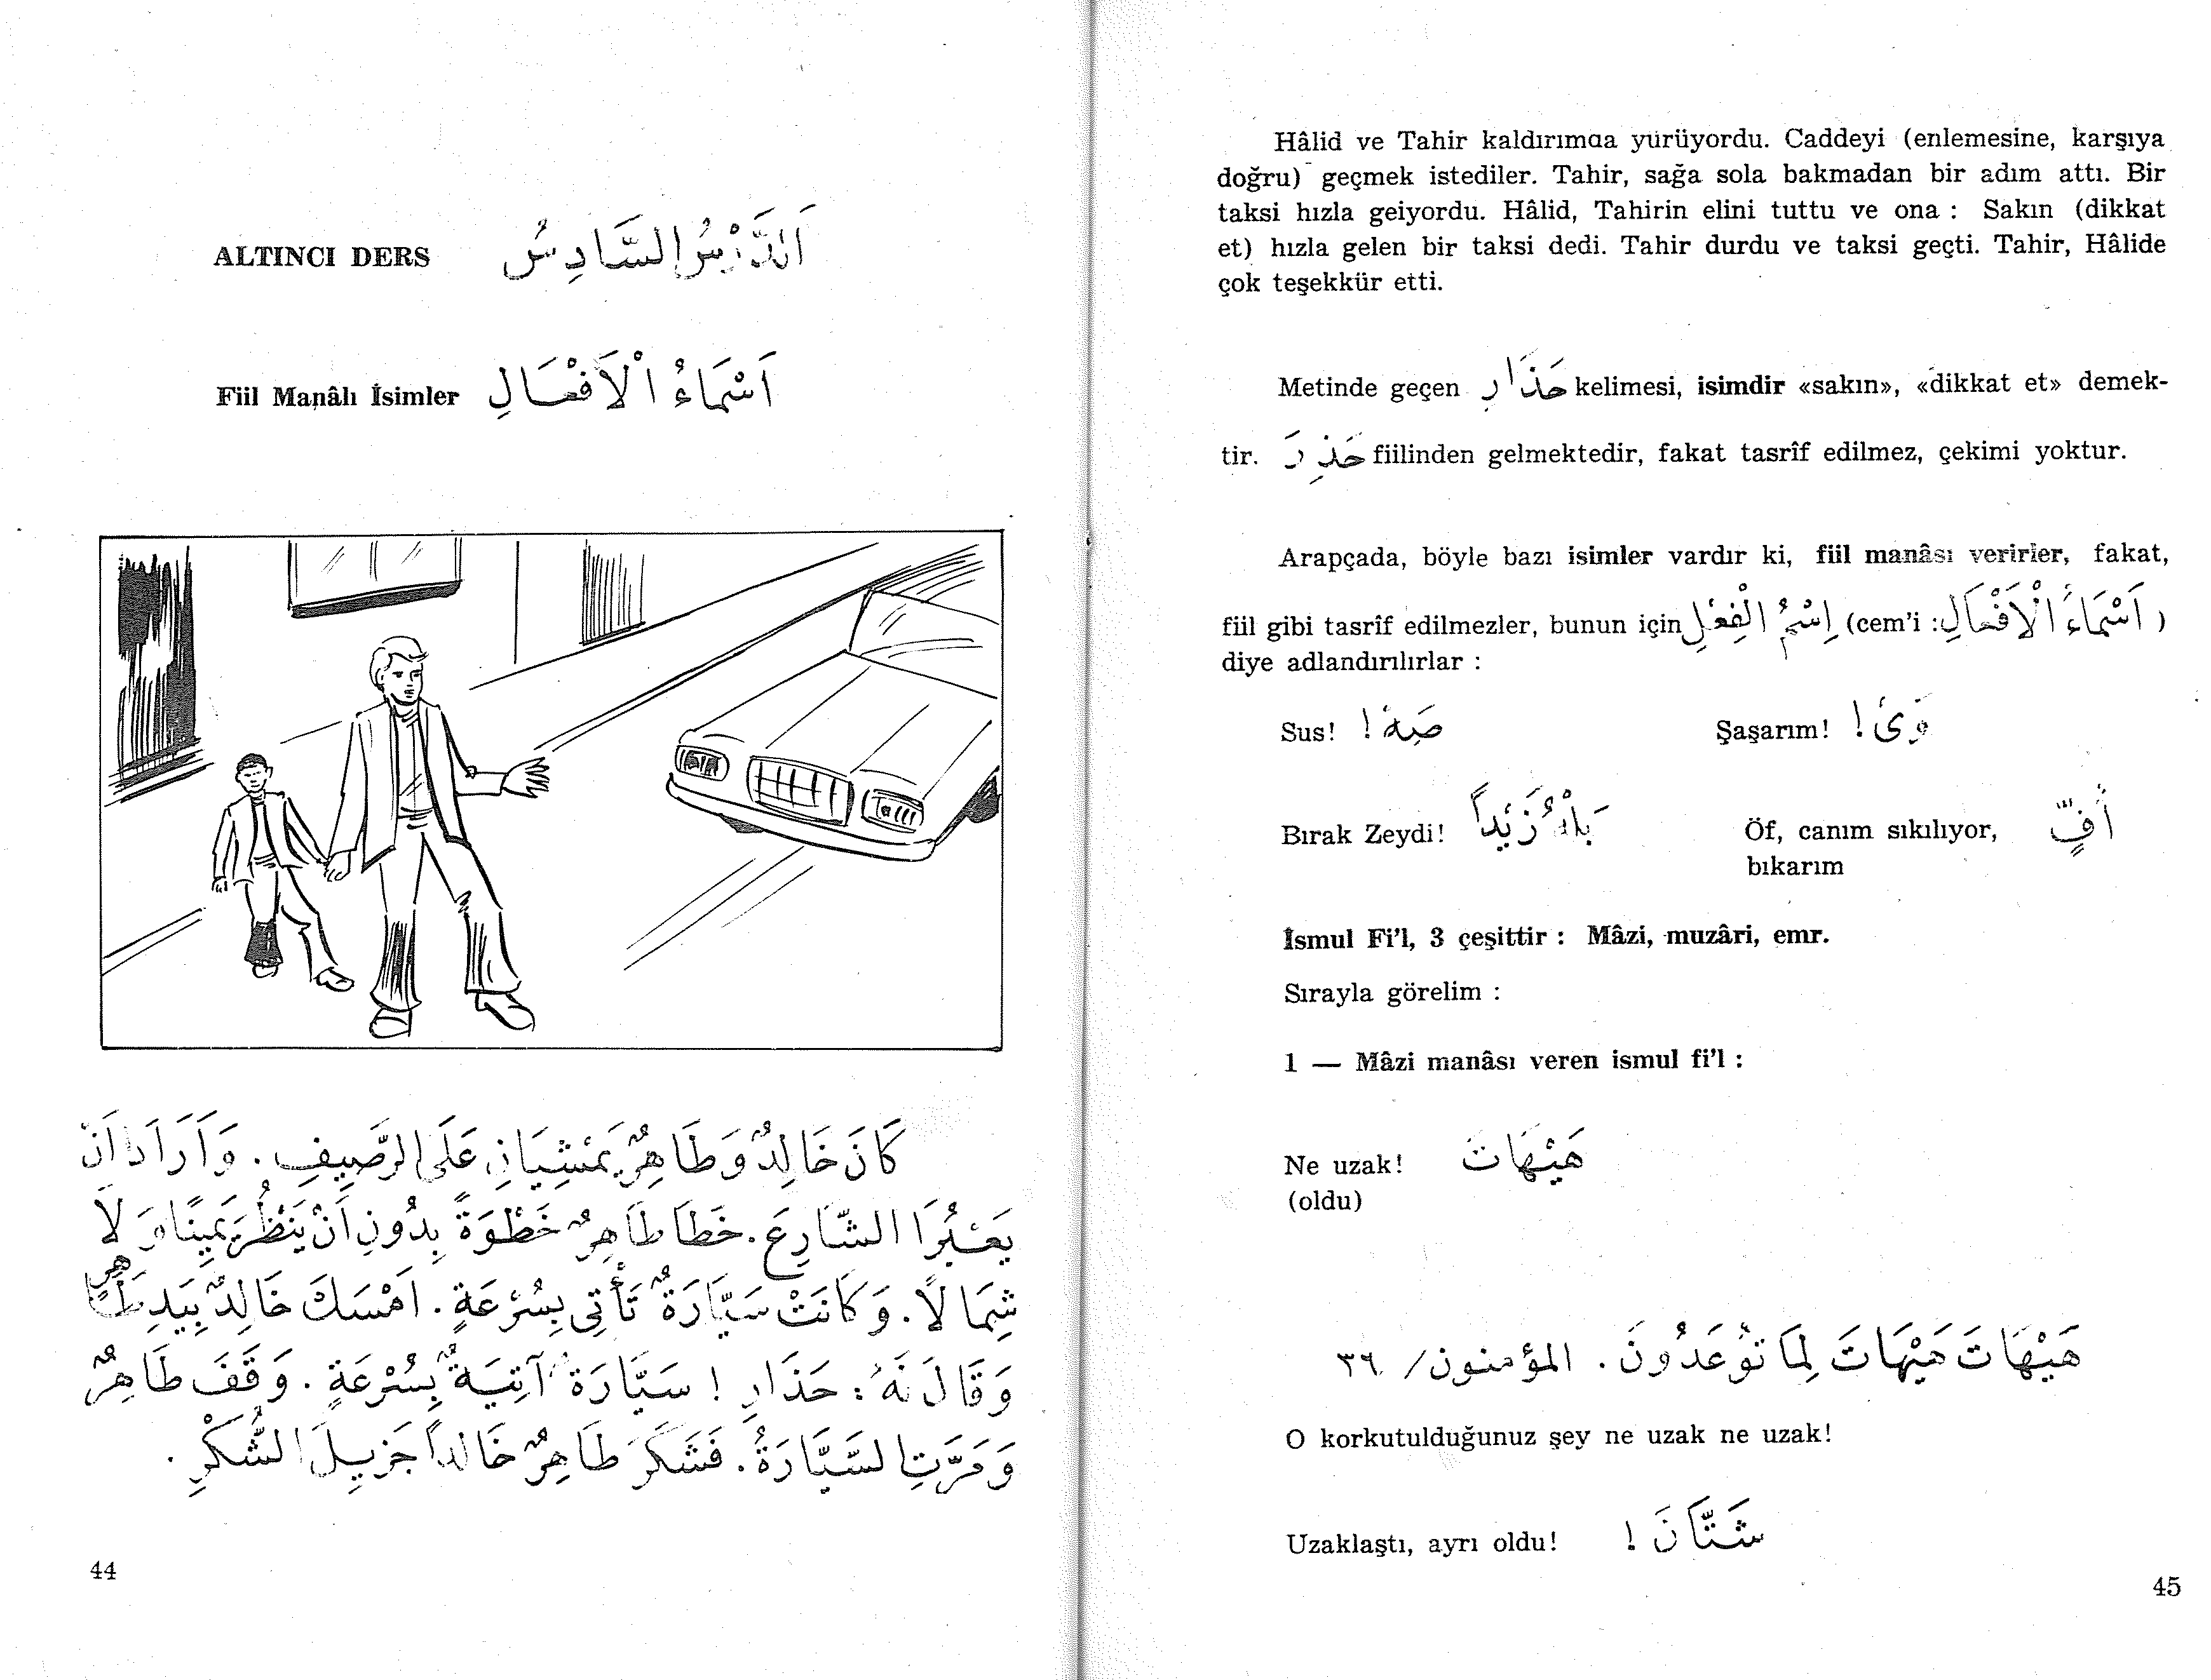 ALTINCI DERS اَلدَّرْسُ السَّادِسُ
Fiil Manâlı İsimler اَسْمَاءُ الْاَفْعَالِ
كَانَ خَالِدٌ وَطَاهِرٌ يَمْشِيَانِ عَلَى الرَّصِيفِ. وَاَرَادَا اَنْ
يَعْبُرَا الشَّارِعَ. خَطَا طَاهِرٌ خَطْوَةً بِدُونِ اَنْ يَنْظُرَ يَمِينًا وَلَا
شِمَالًا. وَكَانَتْ سَيَّارَةٌ تَأْتِى بِسُرْعَةٍ. اَمْسَكَ خَالِدٌ بِيَدِ طَاهِرٍ
وَقَالَ لَهُ: حَذَارِ! سَيَّارَةٌ آتِيَةٌ بِسُرْعَةٍ. وَقَفَ طَاهِرٌ
وَمَرَّتِ السَّيَّارَةُ. فَشَكَرَ طَاهِرٌ خَالِداً جَزِيلَ الشُّكْرِ.
44
Hâlid ve Tahir kaldırımda yürüyordu. Caddeyi (enlemesine, karşıya
doğru) geçmek istediler. Tahir, sağa sola bakmadan bir adım attı. Bir
taksi hızla geiyordu. Hâlid, Tahirin elini tuttu ve ona : Sakın (dikkat
et) hızla gelen bir taksi dedi. Tahir durdu ve taksi geçti. Tahir, Hâlide
çok teşekkür etti.
Metinde geçen حَذَارِ kelimesi, isimdir «sakın», «dikkat et» demek-
tir. حَذِرَ fiilinden gelmektedir, fakat tasrîf edilmez, çekimi yoktur.
Arapçada, böyle bazı isimler vardır ki, fiil manâsı verirler, fakat,
fiil gibi tasrîf edilmezler, bunun için اِسْمُ الْفِعْلِ (cem'i : اَسْمَاءُ الْاَفْعَالِ )
diye adlandırılırlar :
Sus! صَهْ ! Şaşarım! وَىْ !
Bırak Zeydi! بَلْهَ زَيْداً Öf, canım sıkılıyor, أُفٍّ
bıkarım
İsmul Fi'l, 3 çeşittir : Mâzi, muzâri, emr.
Sırayla görelim :
1 — Mâzi manâsı veren ismul fi'l :
Ne uzak! هَيْهَاتَ
(oldu)
هَيْهَاتَ هَيْهَاتَ لِمَا تُوعَدُونَ. المؤمنون/ ٣٦
O korkutulduğunuz şey ne uzak ne uzak!
Uzaklaştı, ayrı oldu! شَتَّانَ !
45